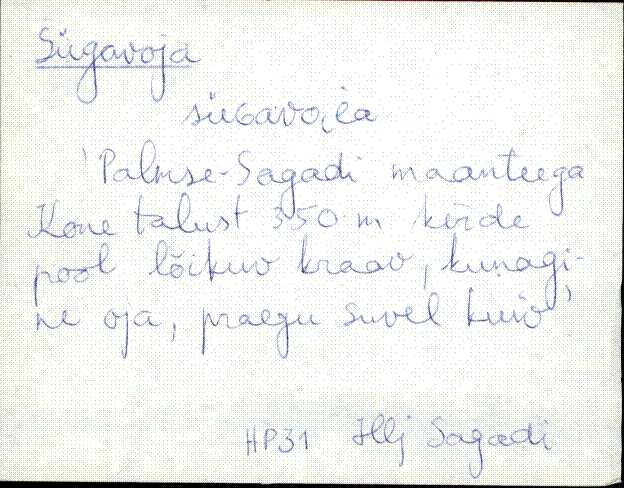 Sügavoja
süGavoi̯a
'Palmse-Sagadi maanteega
Kone talust 350 m kirde
pool lõikuv kraav, kunagi-
ne oja, praegu suvel kuiv'
HP31 Hlj Sagadi